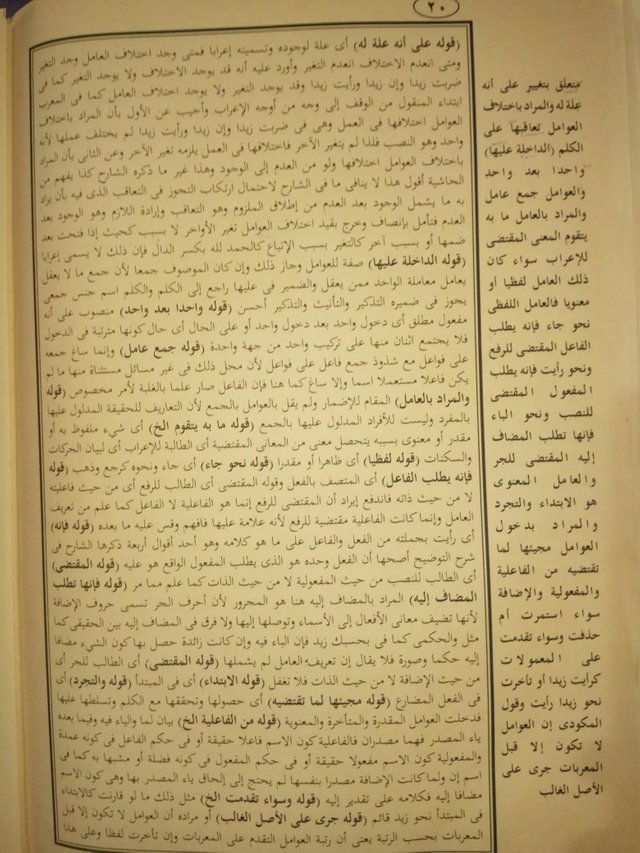 ٢٠
(قوله على أنه علة له) أى علة لوجوده وتسميته إعرابا فمتى وجد اختلاف العامل وجد التغير
ومتى انعدم الاختلاف انعدم التغير وأورد عليه أنه قد يوجد الاختلاف ولا يوجد التغير كما فى
ضربت زيدا وإن زيدا ورأيت زيدا وقد يوجد التغير ولا يوجد اختلاف العامل كما فى المعرب
ابتداء المنقول من الوقف إلى وجه من أوجه الإعراب وأجيب عن الأول بأن المراد باختلاف
العوامل اختلافها فى العمل وهى فى ضربت زيدا وإن زيدا ورأيت زيدا لم يختلف عملها لأنه
واحد وهو النصب فلذا لم يتغير الآخر فاختلافها فى العمل يلزمه تغير الآخر وعن الثانى بأن المراد
باختلاف العوامل اختلافها ولو من العدم إلى الوجود وهذا غير ما ذكره الشارح كذا يفهم من
الحاشية أقول هذا لا ينافى ما فى الشارح لاحتمال ارتكاب التجوز فى التعاقب الذى فيه بأن يراد
به ما يشمل الوجود بعد العدم من إطلاق الملزوم وهو التعاقب وإرادة اللازم وهو الوجود بعد
العدم فتأمل بإنصاف وخرج بقيد اختلاف العوامل تغير الأواخر لا بسبب كحيث إذا فتحت بعد
ضمها أو بسبب آخر كالتغير بسبب الإتباع كالحمد لله بكسر الدال فإن ذلك لا يسمى إعرابا
(قوله الداخلة عليها) صفة للعوامل وجاز ذلك وإن كان الموصوف جمعا لأن جمع ما لا يعقل
يعامل معاملة الواحد ممن يعقل والضمير فى عليها راجع إلى الكلم والكلم اسم جنس جمعى
يجوز فى ضميره التذكير والتأنيث والتذكير أحسن (قوله واحدا بعد واحد) منصوب على أنه
مفعول مطلق أى دخول واحد بعد دخول واحد أو على الحال أى حال كونها مترتبة فى الدخول
فلا يجتمع اثنان منها على تركيب واحد من جهة واحدة (قوله جمع عامل) وإنما ساغ جمعه
على فواعل مع شذوذ جمع فاعل على فواعل لأن محل ذلك فى غير مسائل مستثناة منها ما لم
يكن فاعلا مستعملا اسما وإلا ساغ كما هنا فإن الفاعل صار علما بالغلبة لأمر مخصوص (قوله
والمراد بالعامل) المقام للإضمار ولم يقل بالعوامل بالجمع لأن التعاريف للحقيقة المدلول عليها
بالمفرد وليست للأفراد المدلول عليها بالجمع (قوله ما به يتقوم الخ) أى شىء ملفوظ به أو
مقدر أو معنوى بسببه يتحصل معنى من المعانى المقتضية أى الطالبة للإعراب أى لبيان الحركات
والسكنات (قوله لفظيا) أى ظاهرا أو مقدرا (قوله نحو جاء) أى جاء ونحوه كرجع وذهب (قوله
فإنه يطلب الفاعل) أى المتصف بالفعل وقوله المقتضى أى الطالب للرفع أى من حيث فاعليته
لا من حيث ذاته فاندفع إيراد أن المقتضى للرفع إنما هو الفاعلية لا الفاعل كما علم من تعريف
العامل وإنما كانت الفاعلية مقتضية للرفع لأنه علامة عليها فافهم وقس عليه ما بعده (قوله فإنه)
أى رأيت بجملته من الفعل والفاعل على ما هو كلامه وهو أحد أقوال أربعة ذكرها الشارح فى
شرح التوضيح أصحها أن الفعل وحده هو الذى يطلب المفعول الواقع هو عليه (قوله المقتضى)
أى الطالب للنصب من حيث المفعولية لا من حيث الذات كما علم مما مر (قوله فإنها تطلب
المضاف إليه) المراد بالمضاف إليه هنا هو المجرور لأن أحرف الجر تسمى حروف الإضافة
لأنها تضيف معانى الأفعال إلى الأسماء وتوصلها إليها ولا فرق فى المضاف إليه بين الحقيقى كما
مثل والحكمى كما فى بحسبك زيد فإن الباء فيه وإن كانت زائدة حصل بها كون الشىء مضافا
إليه حكما وصورة فلا يقال إن تعريف العامل لم يشملها (قوله المقتضى) أى الطالب للجر أى
من حيث الإضافة لا من حيث الذات فلا تغفل (قوله الابتداء) أى فى المبتدأ (قوله والتجرد) أى
فى الفعل المضارع (قوله مجيئها لما تقتضيه) أى حصولها وتحققها مع الكلم وتسلطها عليها
فدخلت العوامل المقدرة والمتأخرة والمعنوية (قوله من الفاعلية الخ) بيان لما والياء فيه وفيما بعده
ياء المصدر فهما مصدران فالفاعلية كون الاسم فاعلا حقيقة أو فى حكم الفاعل فى كونه عمدة
والمفعولية كون الاسم مفعولا حقيقة أو فى حكم المفعول فى كونه فضلة أو مشبها به كما فى
اسم إن ولما كانت الإضافة مصدرا بنفسها لم يحتج إلى إلحاق ياء المصدر بها وهى كون الاسم
مضافا إليه فكلامه على تقدير إليه (قوله وسواء تقدمت الخ) مثل ذلك ما لو قارنت كالابتداء
فى المبتدأ نحو زيد قائم (قوله جرى على الأصل الغالب) أو مراده أن العوامل لا تكون إلا قبل
المعربات بحسب الرتبة يعنى أن رتبة العوامل التقدم على المعربات وإن تأخرت لفظا وعلى هذا
متعلق بتغيير على أنه
علة له والمراد باختلاف
العوامل تعاقبها على
الكلم (الداخلة عليها)
واحدا بعد واحد
والعوامل جمع عامل
والمراد بالعامل ما به
يتقوم المعنى المقتضى
للإعراب سواء كان
ذلك العامل لفظيا أو
معنويا فالعامل اللفظى
نحو جاء فإنه يطلب
الفاعل المقتضى للرفع
ونحو رأيت فإنه يطلب
المفعول المقتضى
للنصب ونحو الباء
فإنها تطلب المضاف
إليه المقتضى للجر
والعامل المعنوى
هو الابتداء والتجرد
والمراد بدخول
العوامل مجيئها لما
تقتضيه من الفاعلية
والمفعولية والإضافة
سواء استمرت أم
حذفت وسواء تقدمت
على المعمولات
كرأيت زيدا أو تأخرت
نحو زيدا رأيت وقول
المكودى إن العوامل
لا تكون إلا قبل
المعربات جرى على
الأصل الغالب